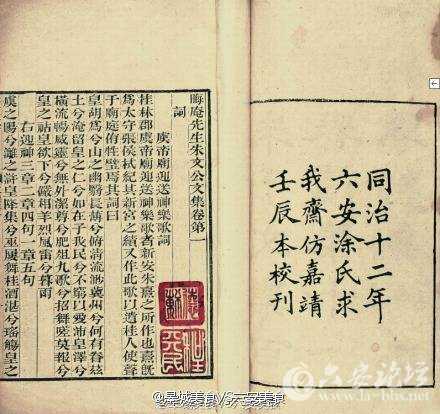 同治十二年
六安涂氏求
我齋仿嘉靖
壬辰本校刊
晦庵先生朱文公文集卷第一
詞
虞帝廟迎送神樂歌詞
桂林郡虞帝廟迎送神樂歌者新安朱熹之所作也熹既
為太守張侯栻紀其新宮之績又作此歌以遺桂人使聲
于廟庭侑牲璧焉其詞曰
皇胡為兮山之幽翳長薄兮俯清流渺冀州兮何有眷茲
土兮淹留皇之仁兮如在子我民兮不窮以愛沛皇澤兮
橫流暢威靈兮無外潔尊兮肥俎九歌兮招舞嗟莫報兮
皇之祜皇欲下兮儼相羊烈風雷兮暮雨
右迎神三章二章四句一章五句
虞之陽兮漓之滸皇降集兮巫屢舞桂酒湛兮瑤觴皇之
六安论坛
www.la-bbs.net
@皋城美食VS六安美食